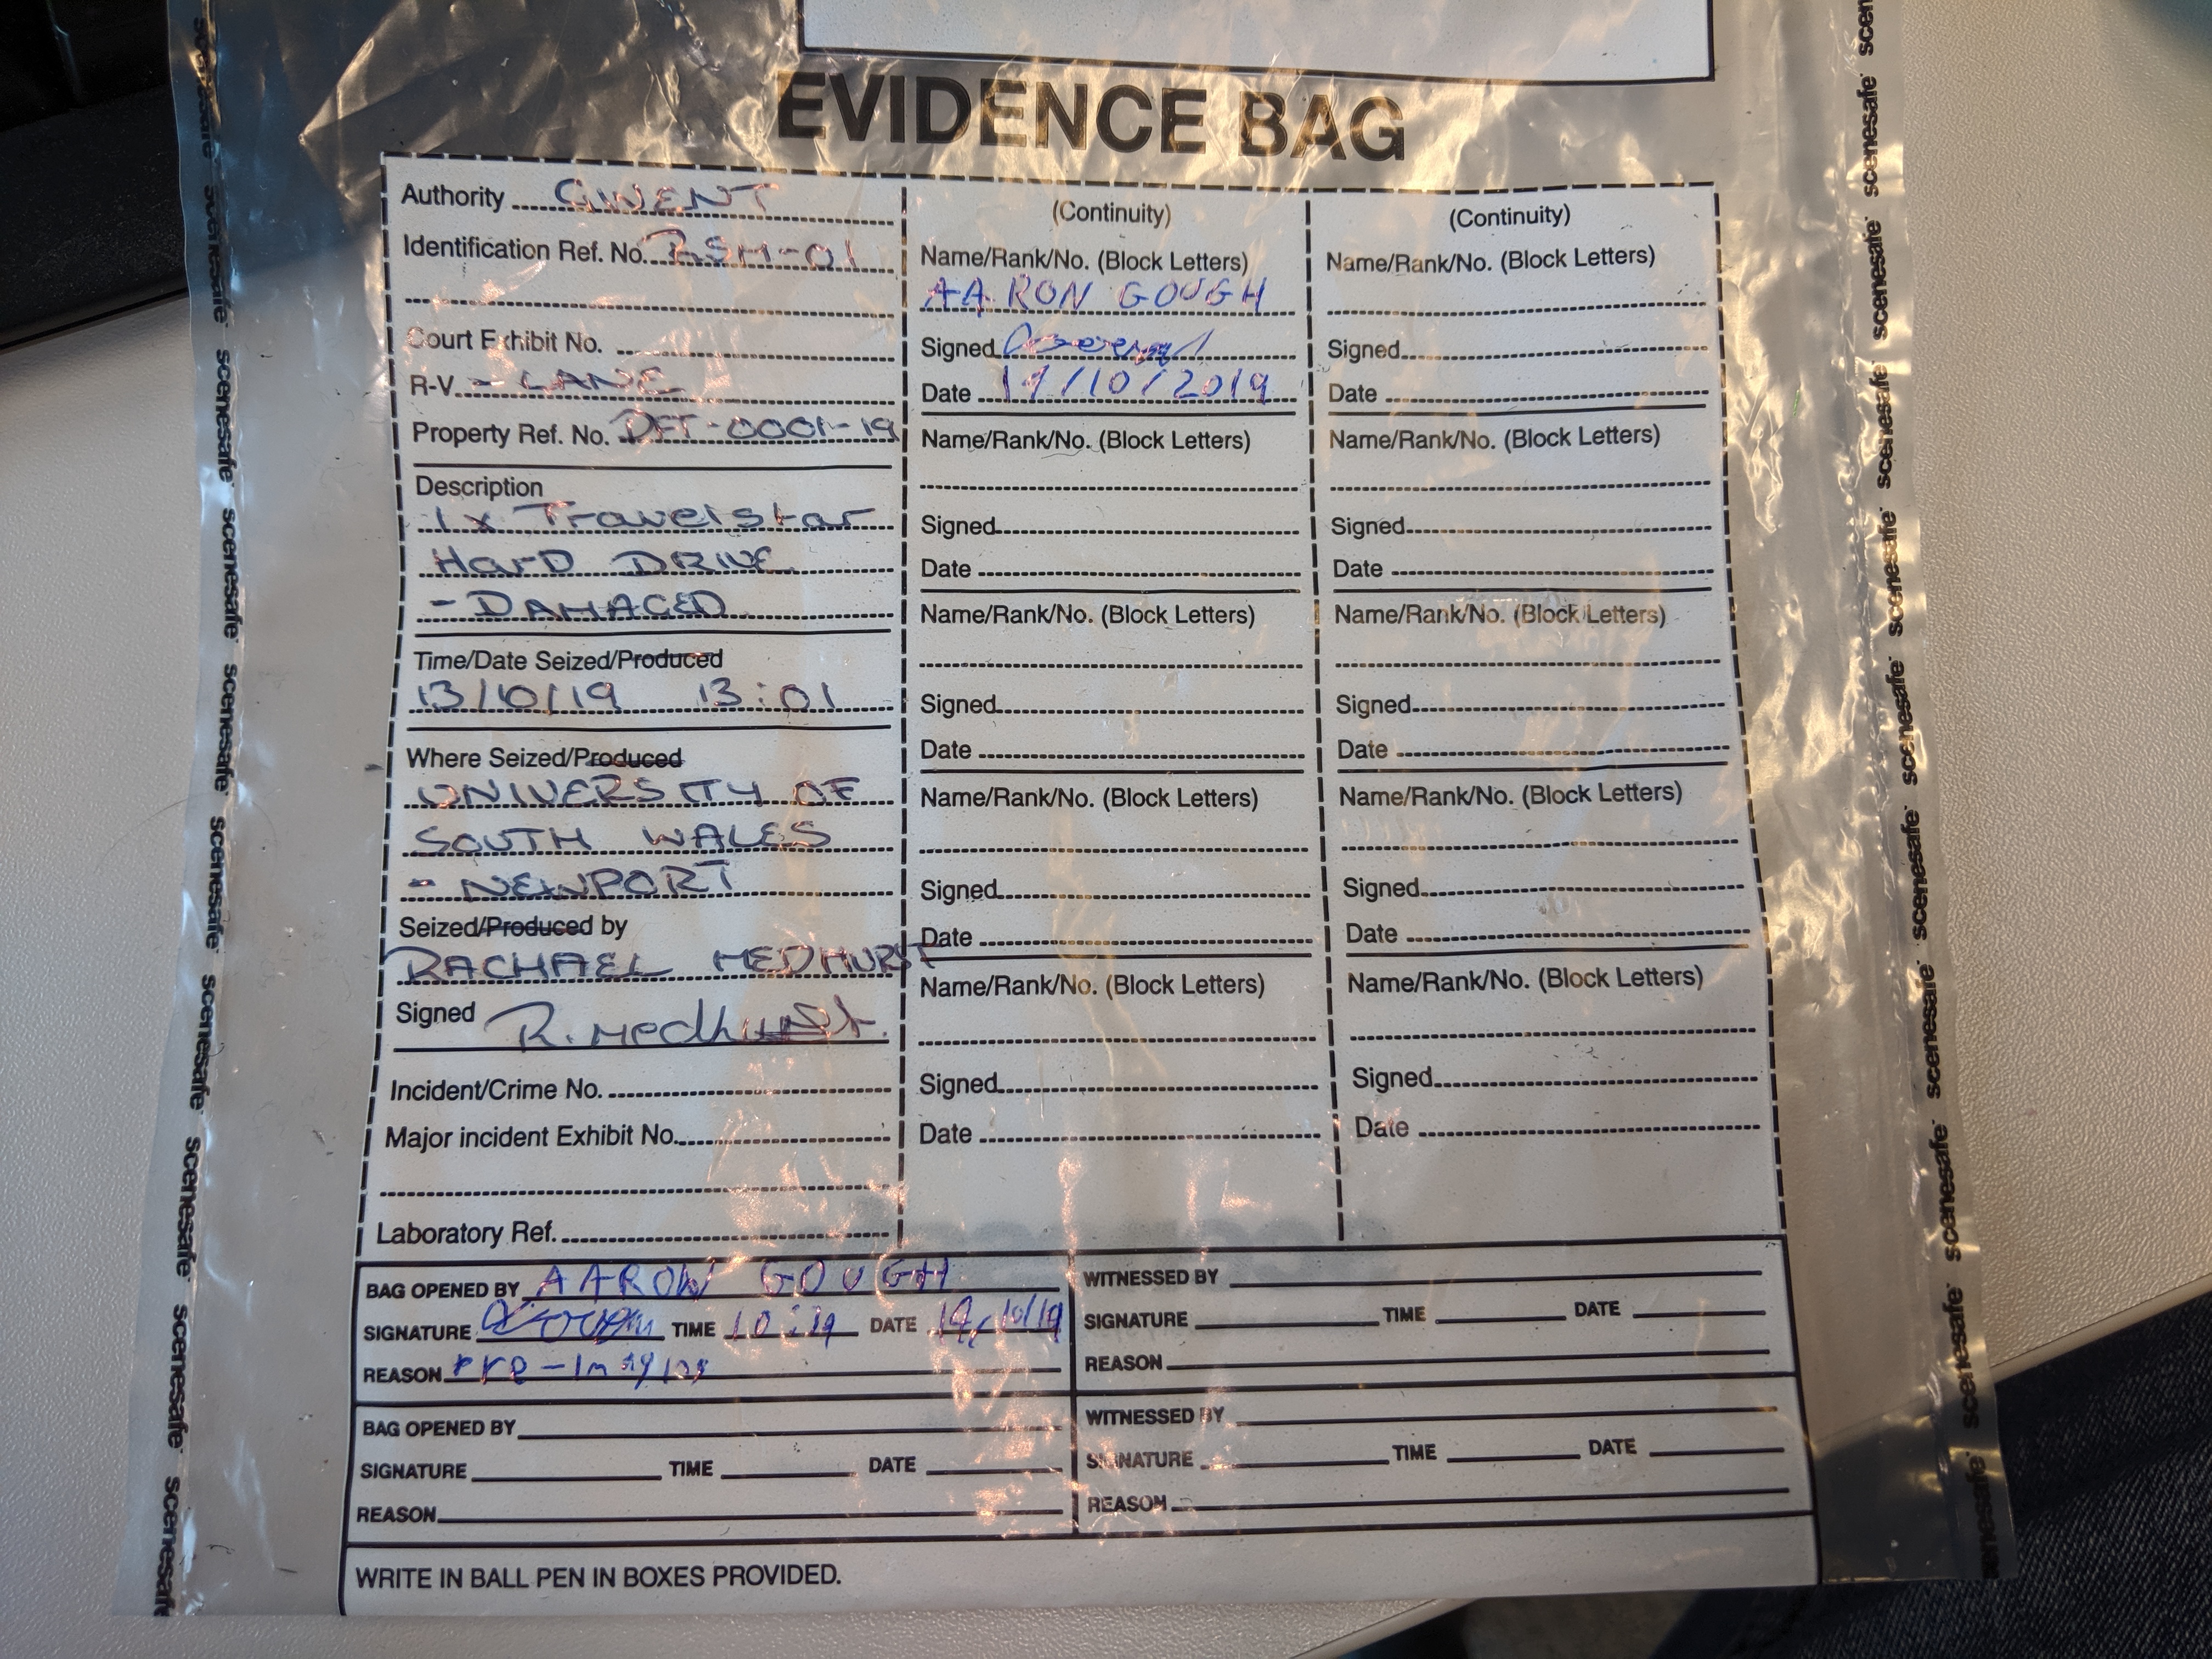 EVIDENCE BAG
Authority GWENT
Identification Ref. No. RSM-01
Court Exhibit No.
R-V - LANE
Property Ref. No. DFT-0001-19
Description
1x Travelstar
HarD DRIVE
- DAMAGED
Time/Date Seized/Produced
13/10/19 13:01
Where Seized/Produced
UNIVERSITY OF
SOUTH WALES
- NEWPORT
Seized/Produced by
RACHAEL MEDHURST
Signed R. Medhurst.
Incident/Crime No.
Major incident Exhibit No.
Laboratory Ref.
(Continuity)
Name/Rank/No. (Block Letters)
AARON GOUGH
Signed
Date 17/10/2019
Name/Rank/No. (Block Letters)
Signed
Date
Name/Rank/No. (Block Letters)
Signed
Date
Name/Rank/No. (Block Letters)
Signed
Date
Name/Rank/No. (Block Letters)
Signed
Date
(Continuity)
Name/Rank/No. (Block Letters)
Signed
Date
Name/Rank/No. (Block Letters)
Signed
Date
Name/Rank/No. (Block Letters)
Signed
Date
Name/Rank/No. (Block Letters)
Signed
Date
Name/Rank/No. (Block Letters)
Signed
Date
BAG OPENED BY AARON GOUGH
SIGNATURE TIME DATE
REASON Pre-Imaging
WITNESSED BY
SIGNATURE TIME DATE
REASON
BAG OPENED BY
SIGNATURE TIME DATE
REASON
WITNESSED BY
SIGNATURE TIME DATE
REASON
WRITE IN BALL PEN IN BOXES PROVIDED.
scenesafe scenesafe scenesafe scenesafe scenesafe scenesafe scenesafe scenesafe scenesafe
scenesafe scenesafe scenesafe scenesafe scenesafe scenesafe scenesafe scenesafe scenesafe